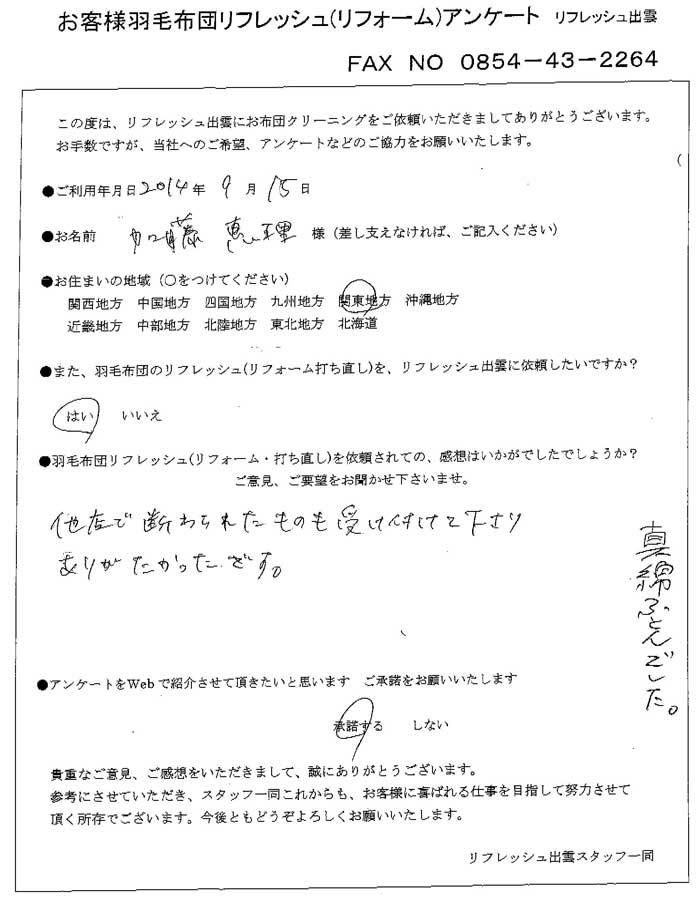 お客様羽毛布団リフレッシュ(リフォーム)アンケート リフレッシュ出雲
FAX NO 0854-43-2264
この度は、リフレッシュ出雲にお布団クリーニングをご依頼いただきましてありがとうございます。
お手数ですが、当社へのご希望、アンケートなどのご協力をお願いいたします。
●ご利用年月日 2014年 9月 15日
●お名前 加藤 恵理 様(差し支えなければ、ご記入ください)
●お住まいの地域(○をつけてください)
関西地方 中国地方 四国地方 九州地方 関東地方 沖縄地方
近畿地方 中部地方 北陸地方 東北地方 北海道
●また、羽毛布団のリフレッシュ(リフォーム打ち直し)を、リフレッシュ出雲に依頼したいですか?
はい いいえ
●羽毛布団リフレッシュ(リフォーム・打ち直し)を依頼されての、感想はいかがでしたでしょうか?
ご意見、ご要望をお聞かせ下さいませ。
他店で断わられたものも受け付けて下さり
ありがたかったです。
真綿ふとんでした。
●アンケートをWebで紹介させて頂きたいと思います ご承諾をお願いいたします
承諾する しない
貴重なご意見、ご感想をいただきまして、誠にありがとうございます。
参考にさせていただき、スタッフ一同これからも、お客様に喜ばれる仕事を目指して努力させて
頂く所存でございます。今後ともどうぞよろしくお願いいたします。
リフレッシュ出雲スタッフ一同